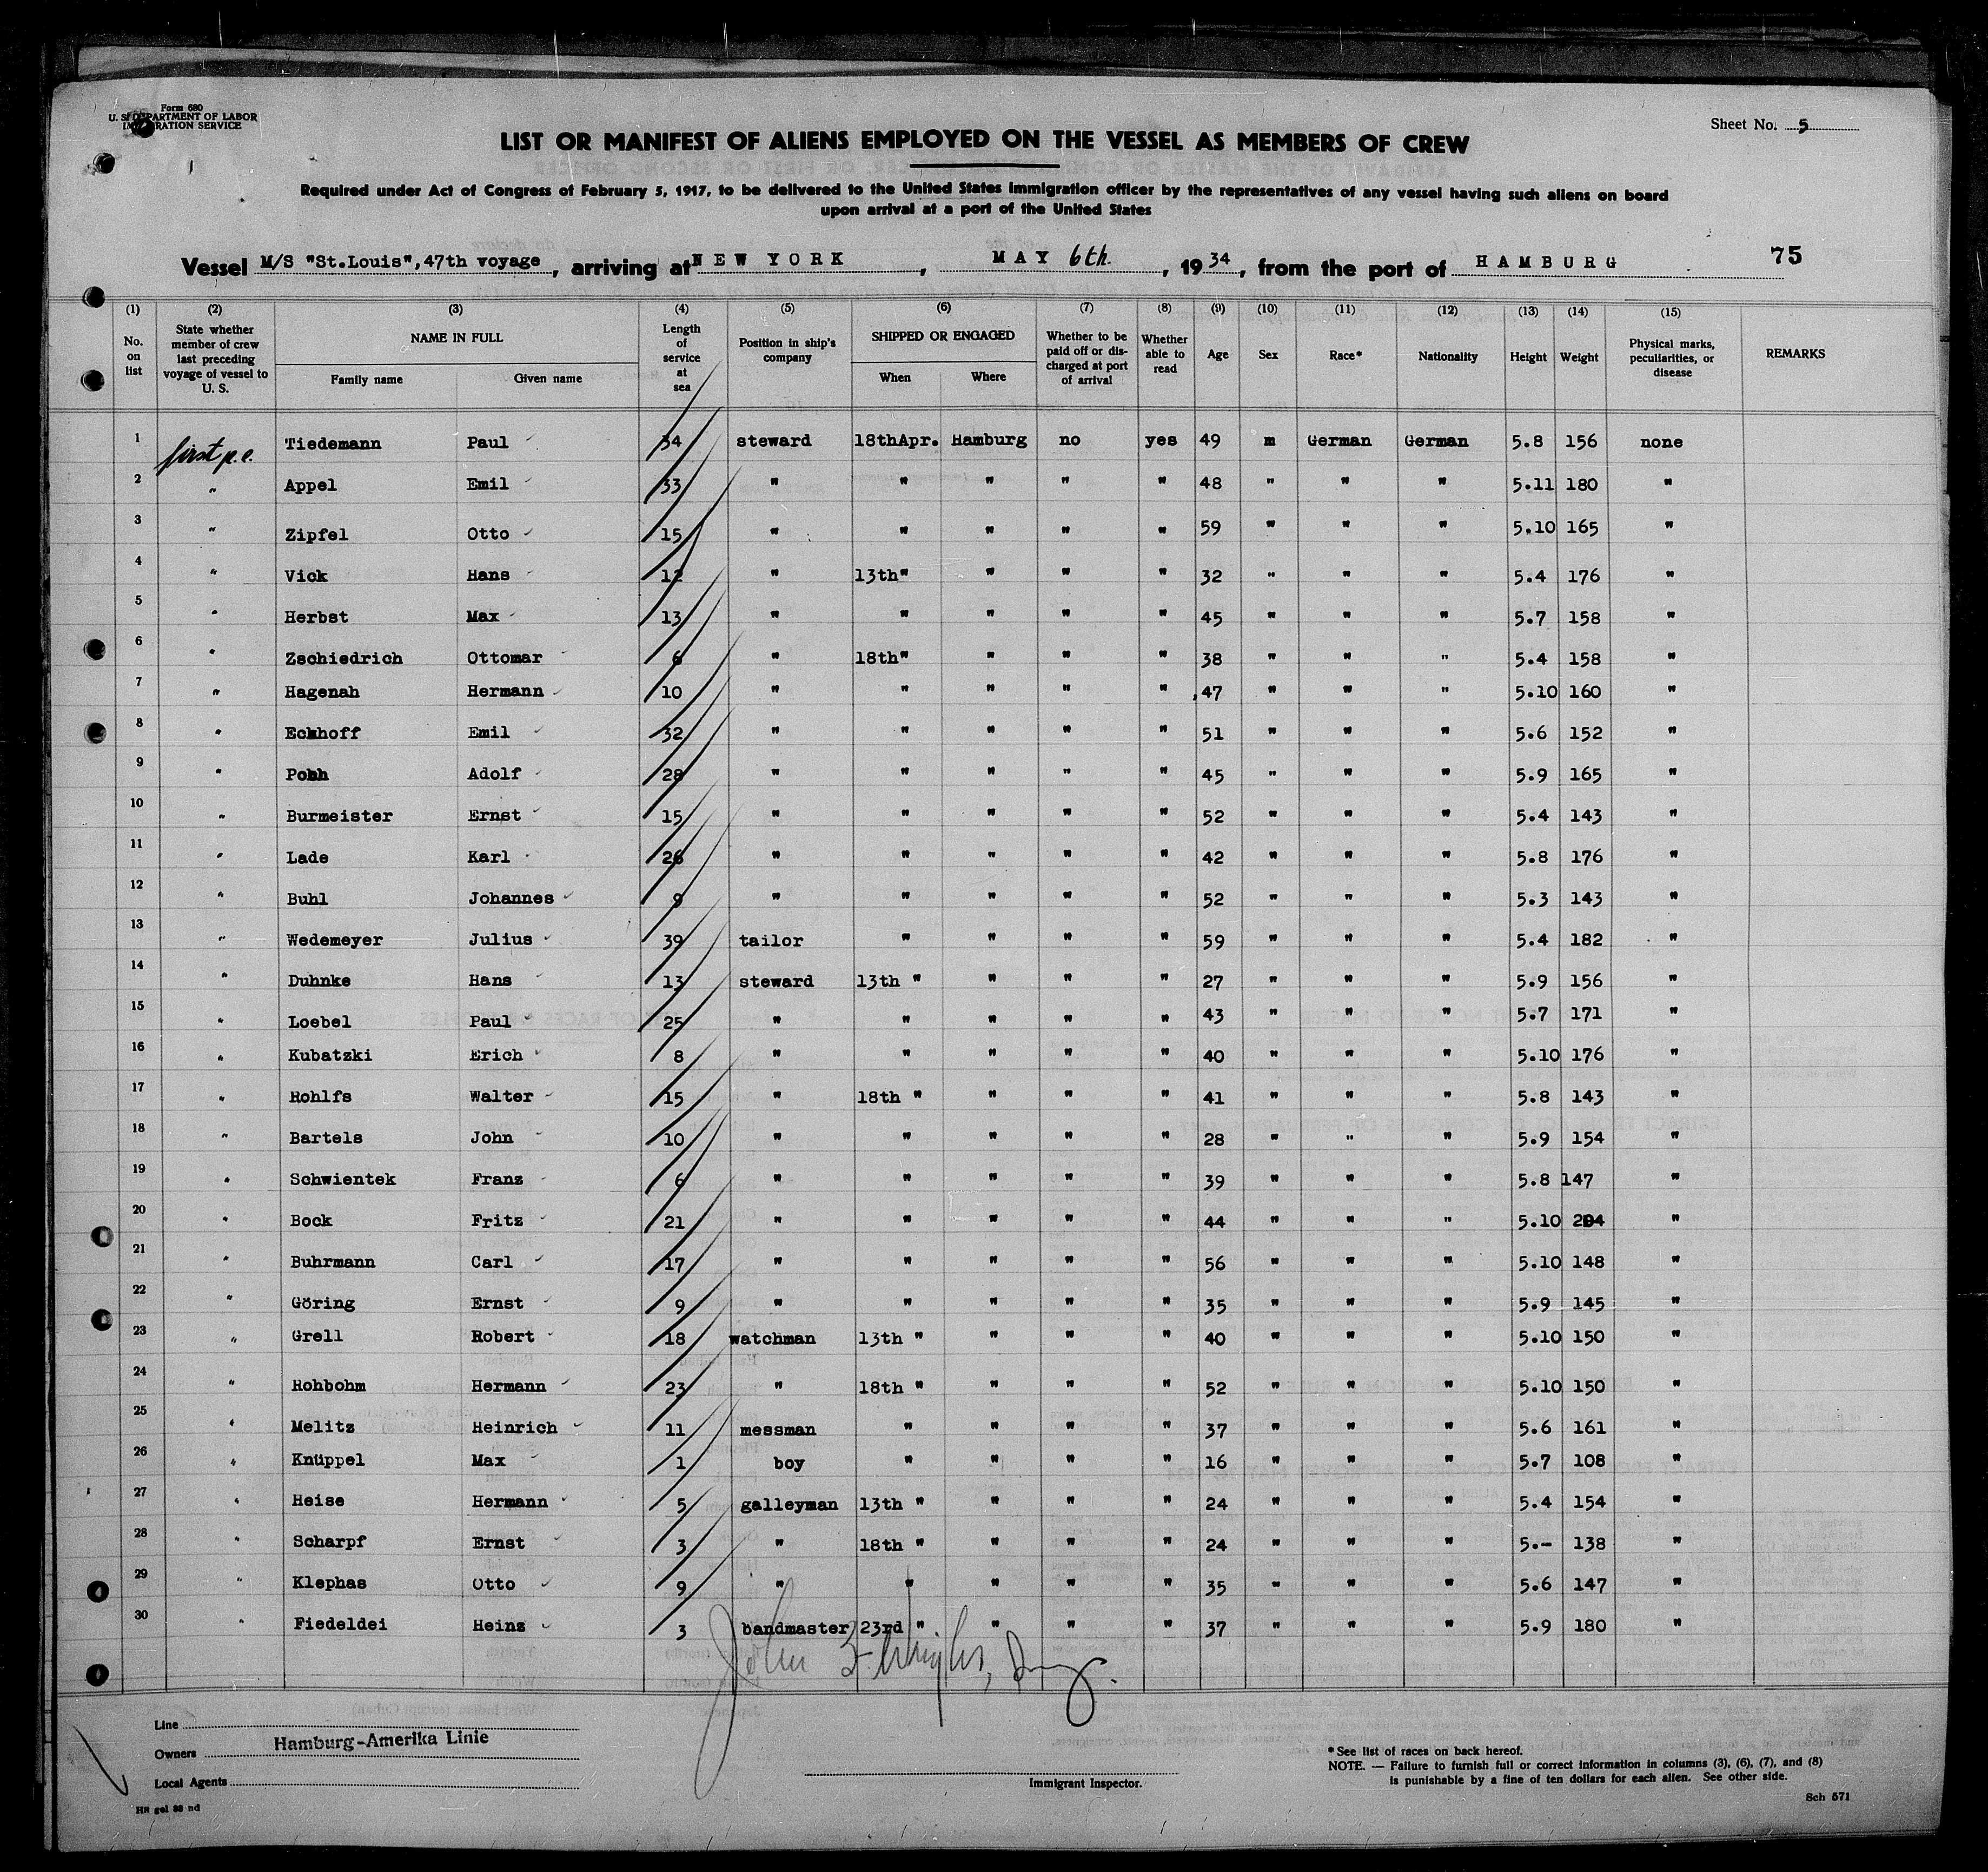 Form 680
U. S. DEPARTMENT OF LABOR
IMMIGRATION SERVICE
Sheet No. 5
LIST OR MANIFEST OF ALIENS EMPLOYED ON THE VESSEL AS MEMBERS OF CREW
Required under Act of Congress of February 5, 1917, to be delivered to the United States immigration officer by the representatives of any vessel having such aliens on board
upon arrival at a port of the United States
Vessel M/S "St.Louis", 47th voyage, arriving at NEW YORK, MAY 6th., 1934, from the port of HAMBURG 75
(1) (2) (3) (4) (5) (6) (7) (8) (9) (10) (11) (12) (13) (14) (15)
No. on list | State whether member of crew last preceding voyage of vessel to U. S. | NAME IN FULL Family name Given name | Length of service at sea | Position in ship's company | SHIPPED OR ENGAGED When Where | Whether to be paid off or discharged at port of arrival | Whether able to read | Age | Sex | Race* | Nationality | Height | Weight | Physical marks, peculiarities, or disease | REMARKS
1 first p.c. Tiedemann Paul 34 steward 18thApr. Hamburg no yes 49 m German German 5.8 156 none
2 " Appel Emil 33 " " " " " 48 " " " 5.11 180 "
3 " Zipfel Otto 15 " " " " " 59 " " " 5.10 165 "
4 " Vick Hans 12 " 13th" " " " 32 " " " 5.4 176 "
5 " Herbst Max 13 " " " " " 45 " " " 5.7 158 "
6 " Zschiedrich Ottomar 6 " 18th" " " " 38 " " " 5.4 158 "
7 " Hagenah Hermann 10 " " " " " 47 " " " 5.10 160 "
8 " Eckhoff Emil 32 " " " " " 51 " " " 5.6 152 "
9 " Adolf 28 " " " " " 45 " " " 5.9 165 "
10 " Burmeister Ernst 15 " " " " " 52 " " " 5.4 143 "
11 " Lade Karl 26 " " " " " 42 " " " 5.8 176 "
12 " Buhl Johannes 9 " " " " " 52 " " " 5.3 143 "
13 " Wedemeyer Julius 39 tailor " " " " 59 " " " 5.4 182 "
14 " Duhnke Hans 13 steward 13th " " " " 27 " " " 5.9 156 "
15 " Loebel Paul 25 " " " " " 43 " " " 5.7 171 "
16 " Kubatzki Erich 8 " " " " " 40 " " " 5.10 176 "
17 " Rohlfs Walter 15 " 18th " " " " 41 " " " 5.8 143 "
18 " Bartels John 10 " " " " " 28 " " " 5.9 154 "
19 " Schwientek Franz 6 " " " " " 39 " " " 5.8 147 "
20 " Bock Fritz 21 " " " " " 44 " " " 5.10 "
21 " Buhrmann Carl 17 " " " " " 56 " " " 5.10 148 "
22 " Göring Ernst 9 " " " " " 35 " " " 5.9 145 "
23 " Grell Robert 18 watchman 13th " " " " 40 " " " 5.10 150 "
24 " Rohbohm Hermann 23 " 18th " " " " 52 " " " 5.10 150 "
25 " Melitz Heinrich 11 messman " " " " 37 " " " 5.6 161 "
26 " Knüppel Max 1 boy " " " " 16 " " " 5.7 108 "
27 " Heise Hermann 5 galleyman 13th " " " " 24 " " " 5.4 154 "
28 " Scharpf Ernst 3 " 18th " " " " 24 " " " 5.- 138 "
29 " Klephas Otto 9 " " " " " 35 " " " 5.6 147 "
30 " Fiedeldei Heinz 3 bandmaster 23rd " " " " 37 " " " 5.9 180 "
John
Line
Owners Hamburg-Amerika Linie
Local Agents
Immigrant Inspector.
*See list of races on back hereof.
NOTE. — Failure to furnish full or correct information in columns (3), (6), (7), and (8)
is punishable by a fine of ten dollars for each alien. See other side.
Sch 571